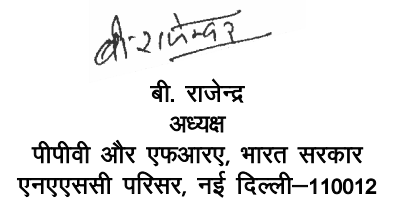 बी. राजेन्द्र
बी. राजेन्द्र
अध्यक्ष
पीपीवी और एफआरए, भारत सरकार
एनएएससी परिसर, नई दिल्ली–110012